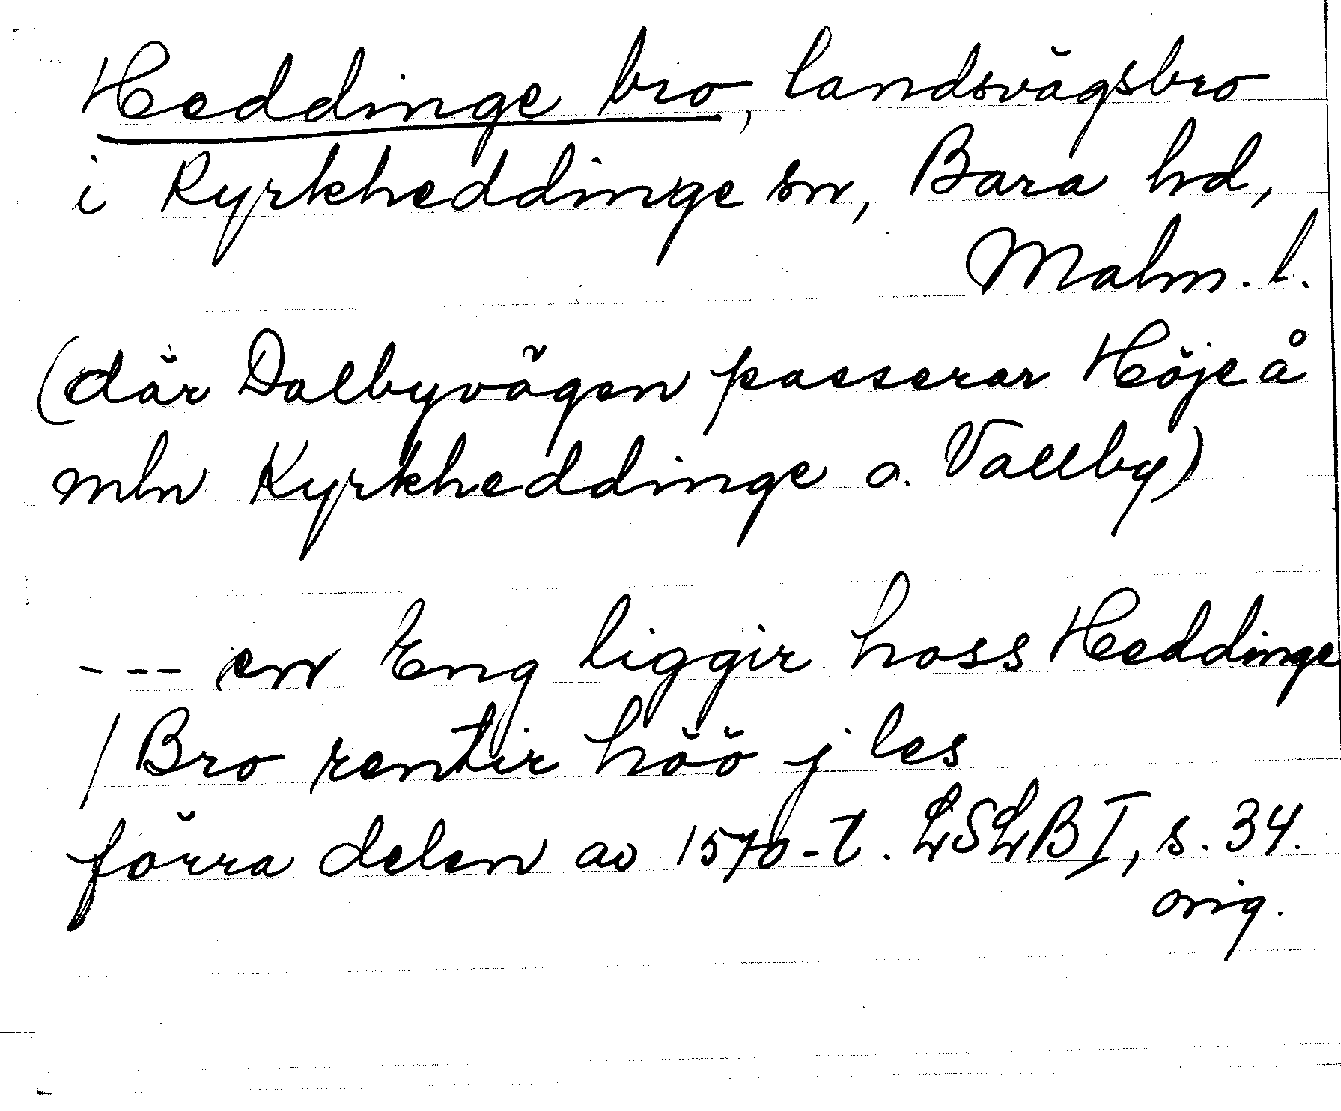 Heddinge bro, landsvägsbro
i Kyrkheddinge sn, Bara hd,
Malm. l.
(där Dalbyvägen passerar Höje å
mln Kyrkheddinge o. Vallby)
--- en Eng liggir hoss Heddinge
/ Bro rentir höö j les
förra delen av 1570-t. LSLB I, s. 34.
orig.